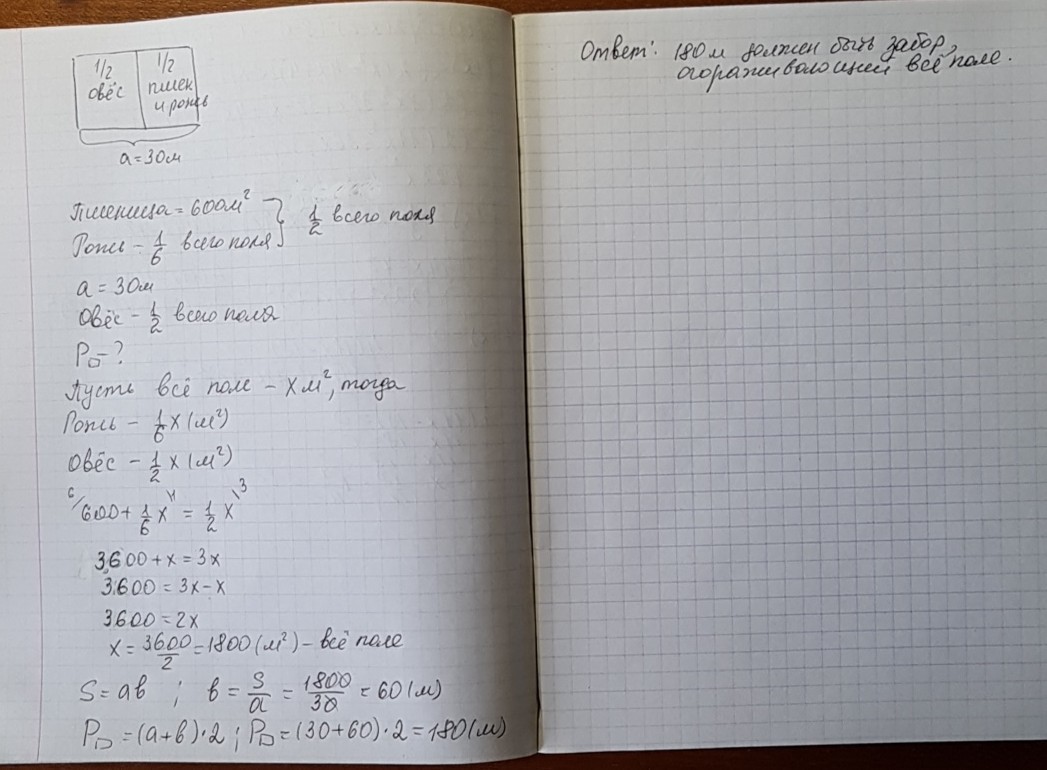 1/2 овёс
1/2 пшен и рожь
a = 30м
Пшеница = 600м² } 1/2 всего поля
Рожь – 1/6 всего поля
a = 30м
Овёс – 1/2 всего поля
P▭ – ?
Пусть всё поле – x м², тогда
Рожь – 1/6 x (м²)
Овёс – 1/2 x (м²)
6/ 600 + 1/6 x \1 = 1/2 x \3
3600 + x = 3x
3600 = 3x – x
3600 = 2x
x = 3600/2 = 1800 (м²) – всё поле
S = aв ; в = S/a = 1800/30 = 60 (м)
P▭ = (a+в)·2 ; P▭ = (30+60)·2 = 180 (м)
Ответ: 180 м должен быть забор,
огораживающий всё поле.